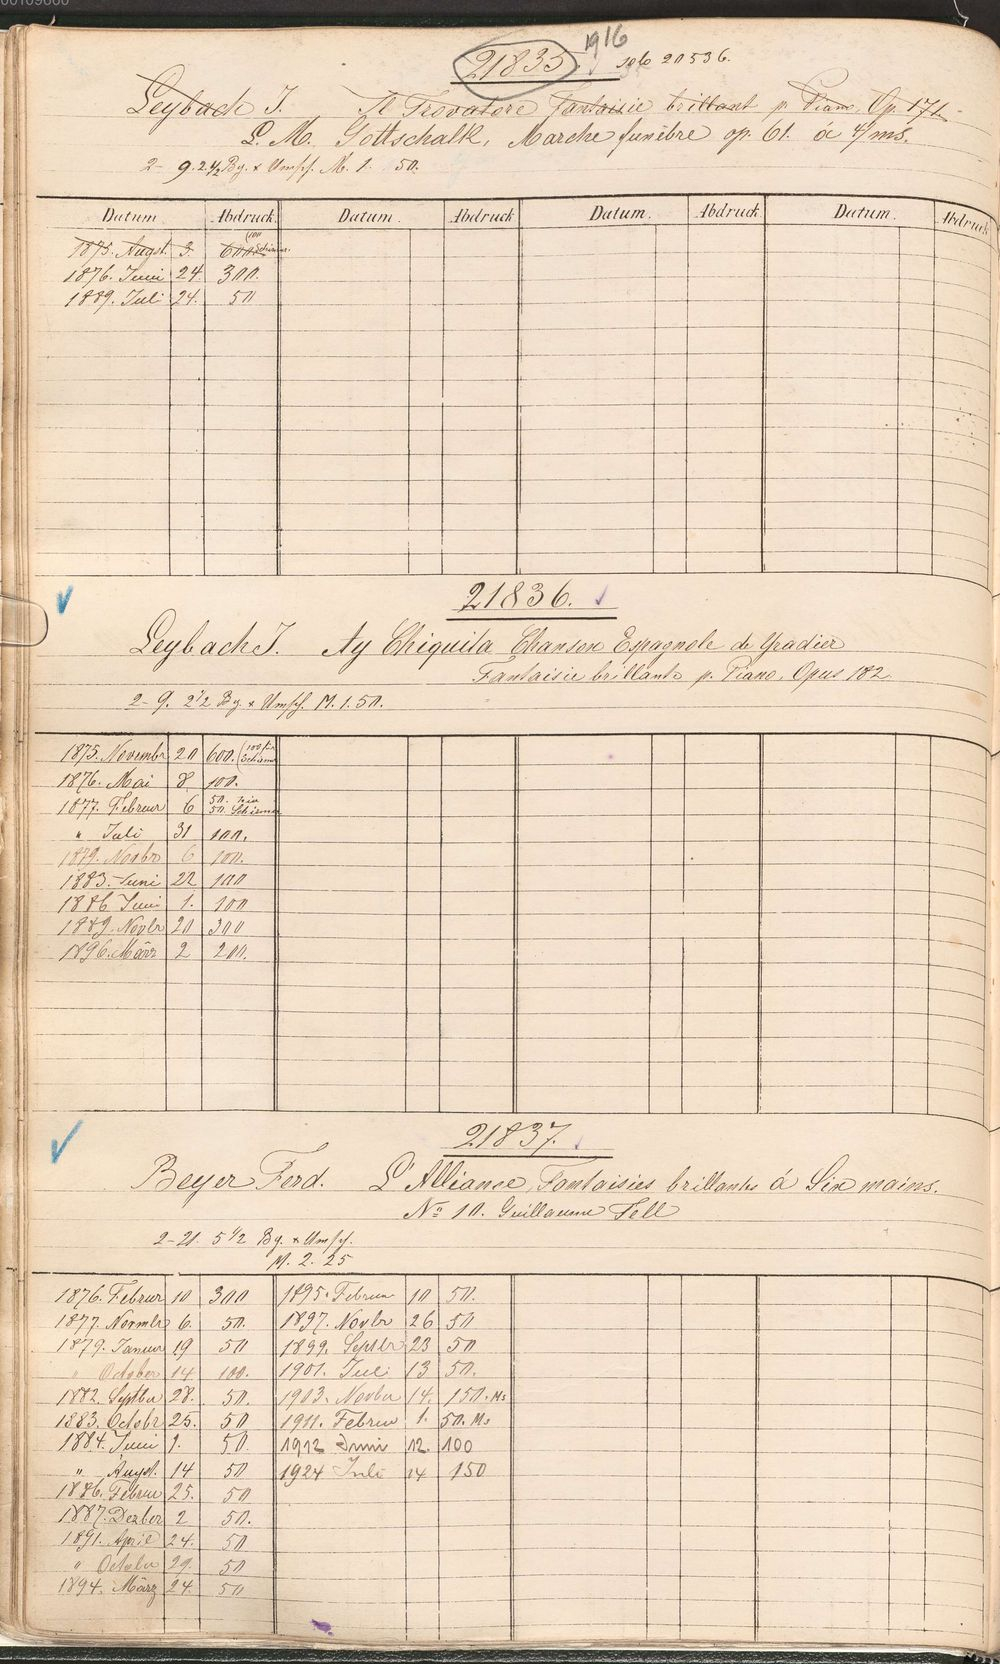 00109660
21835. 1916
20536.
Leybach J. Il Trovatore fantaisie brillant p. Piano. Op. 171.
L. M. Gottschalk, Marche funèbre op. 61. á 4/ms.
2- 9. 2 1/2 Bg. + Umschl. M. 1. 50.
Datum. Abdruck Datum. Abdruck Datum. Abdruck Datum. Abdruck
1875. Augst. 3. 600. (100 Schirmer.
1876. Juni 24. 300.
1889. Juli 24. 50
21836.
Leybach J. Ay Chiquita Chanson Espagnole de Yradier
Fantaisie brillante p. Piano. Opus 182.
2- 9. 2 1/2 Bg. + Umschl. M. 1. 50.
1875. Novembr 20 600. (100 für Schirmer
1876. Mai 8. 100.
1877. Februar 6 50. 50. Schirmer
" Juli 31 100.
1879. Novbr 6 100.
1883. Juni 22 100
1886 Juni 1. 100
1889. Novbr 20 300
1896. März 2 200.
21837.
Beyer Ferd. L'Alliance, Fantaisies brillantes á Six mains.
No 10. Guillaume Tell
2-21. 5 1/2 Bg. + Umschl.
M. 2. 25
1876. Februar 10 300 1895. Februar 10 50.
1877. Novmbr 6. 50. 1897. Novbr 26 50
1879. Januar 19 50 1899. Septbr 23 50
" October 14 100. 1901. Juli 13 50.
1882. Septbr 28. 50. 1903. Novbr 14. 150. Ms
1883. Octobr 25. 50 1911. Februar 1. 50. Ms
1884. Juni 9. 50. 1912 Juni 12. 100
" Augst. 14 50 1924 Juli 14 150
1886. Februar 25. 50
1887. Dezber 2 50.
1891. April 24. 50
" October 29. 50
1894. März 24. 50